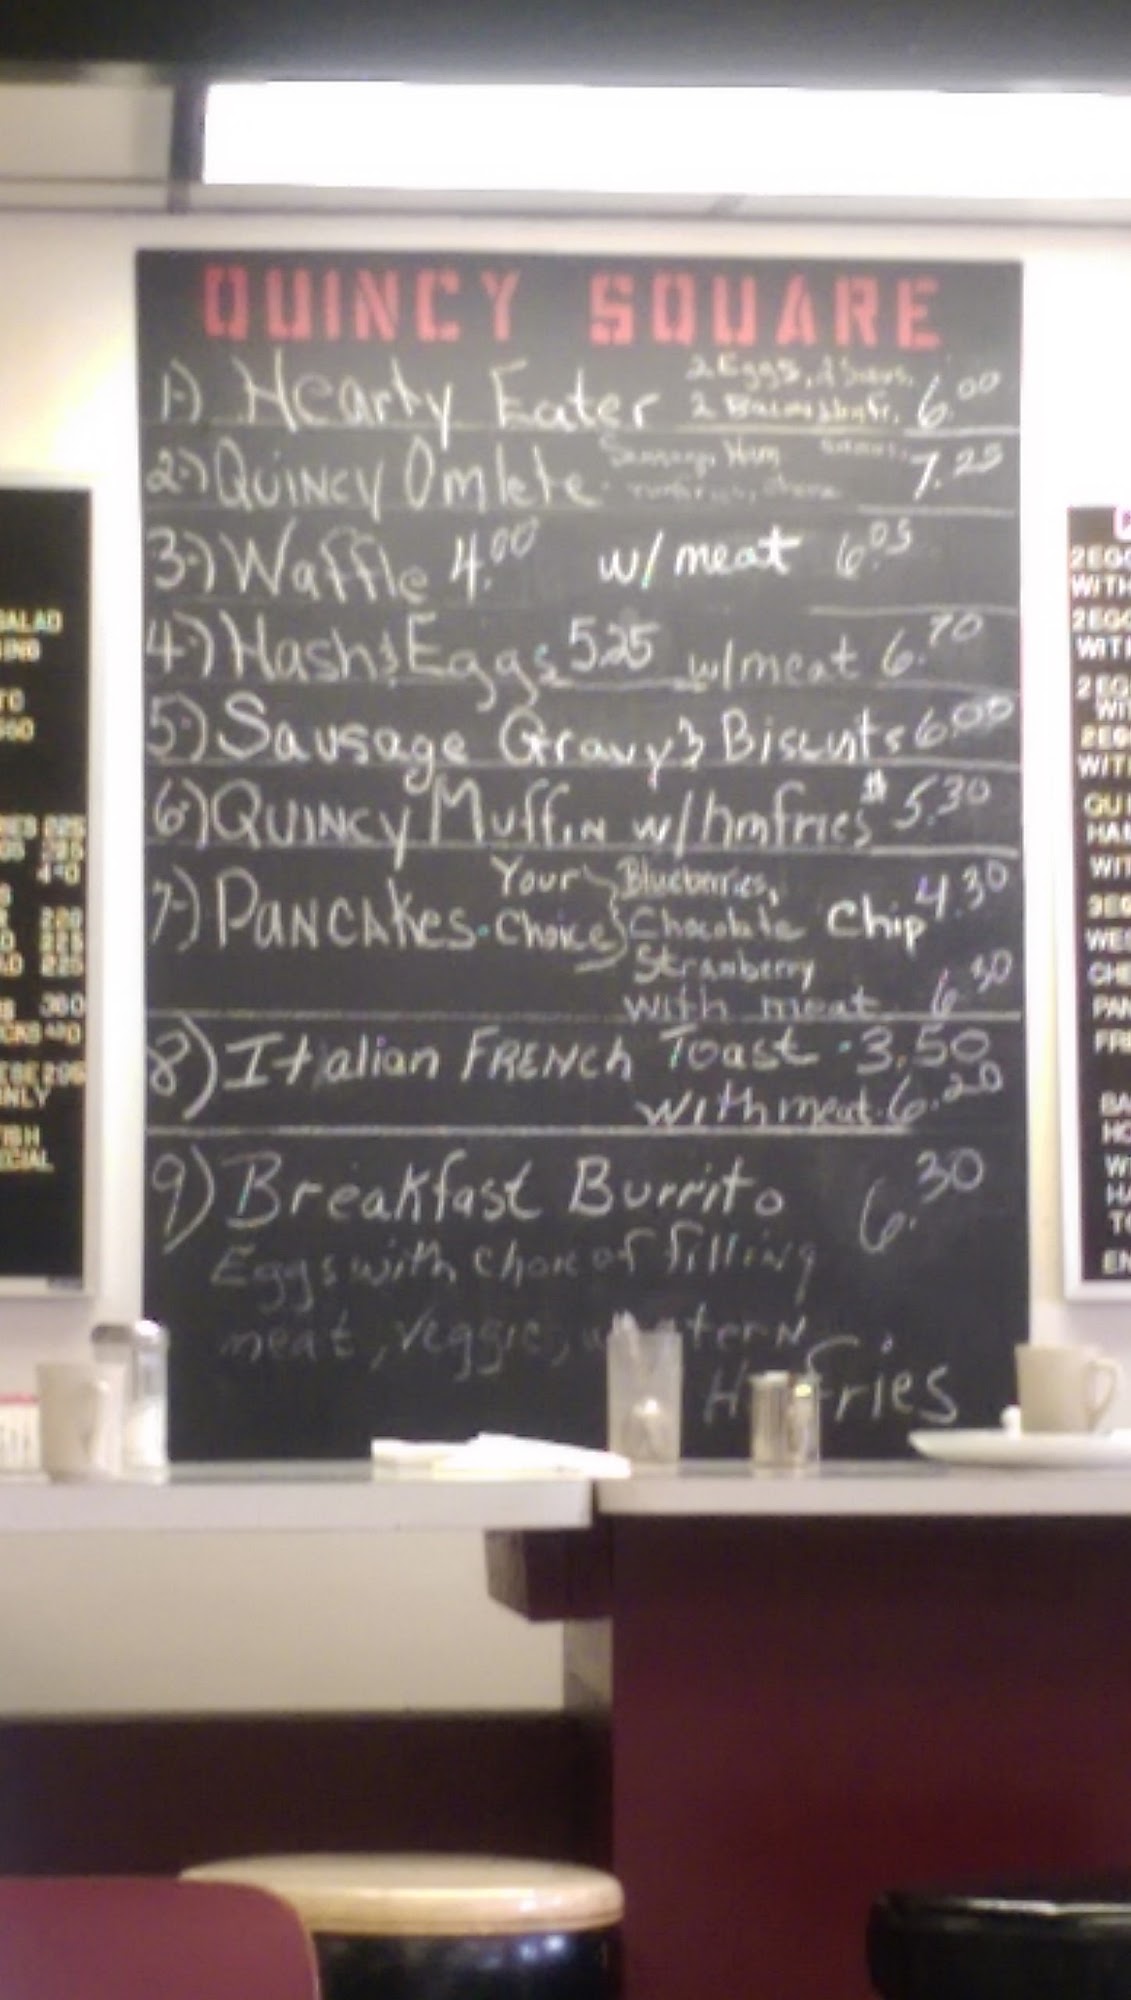 QUINCY SQUARE
1.) Hearty Eater 2 Eggs, 2 Saus. 6.00
2
2.) QUINCY Omlete Sausage, Ham 7.25
3.) Waffle 4.00 w/ meat 6.05
4.) Hash & Eggs 5.25 w/meat 6.70
5.) Sausage Gravy & Biscuits 6.00
6.) QUINCY Muffin w/hmfries $5.30
7.) PANCAKES. Your Choice } Blueberries, 4.30
Chocolate Chip
Strawberry
With meat 6.30
8) Italian FRENCH Toast . 3.50
with meat . 6.20
9) Breakfast Burrito 6.30
Eggs with choice of filling
meat, veggie,
fries
SALAD
ONLY
2 EGG
WITH
2 EGG
WITH
2 EGG
2 EGG
WITH